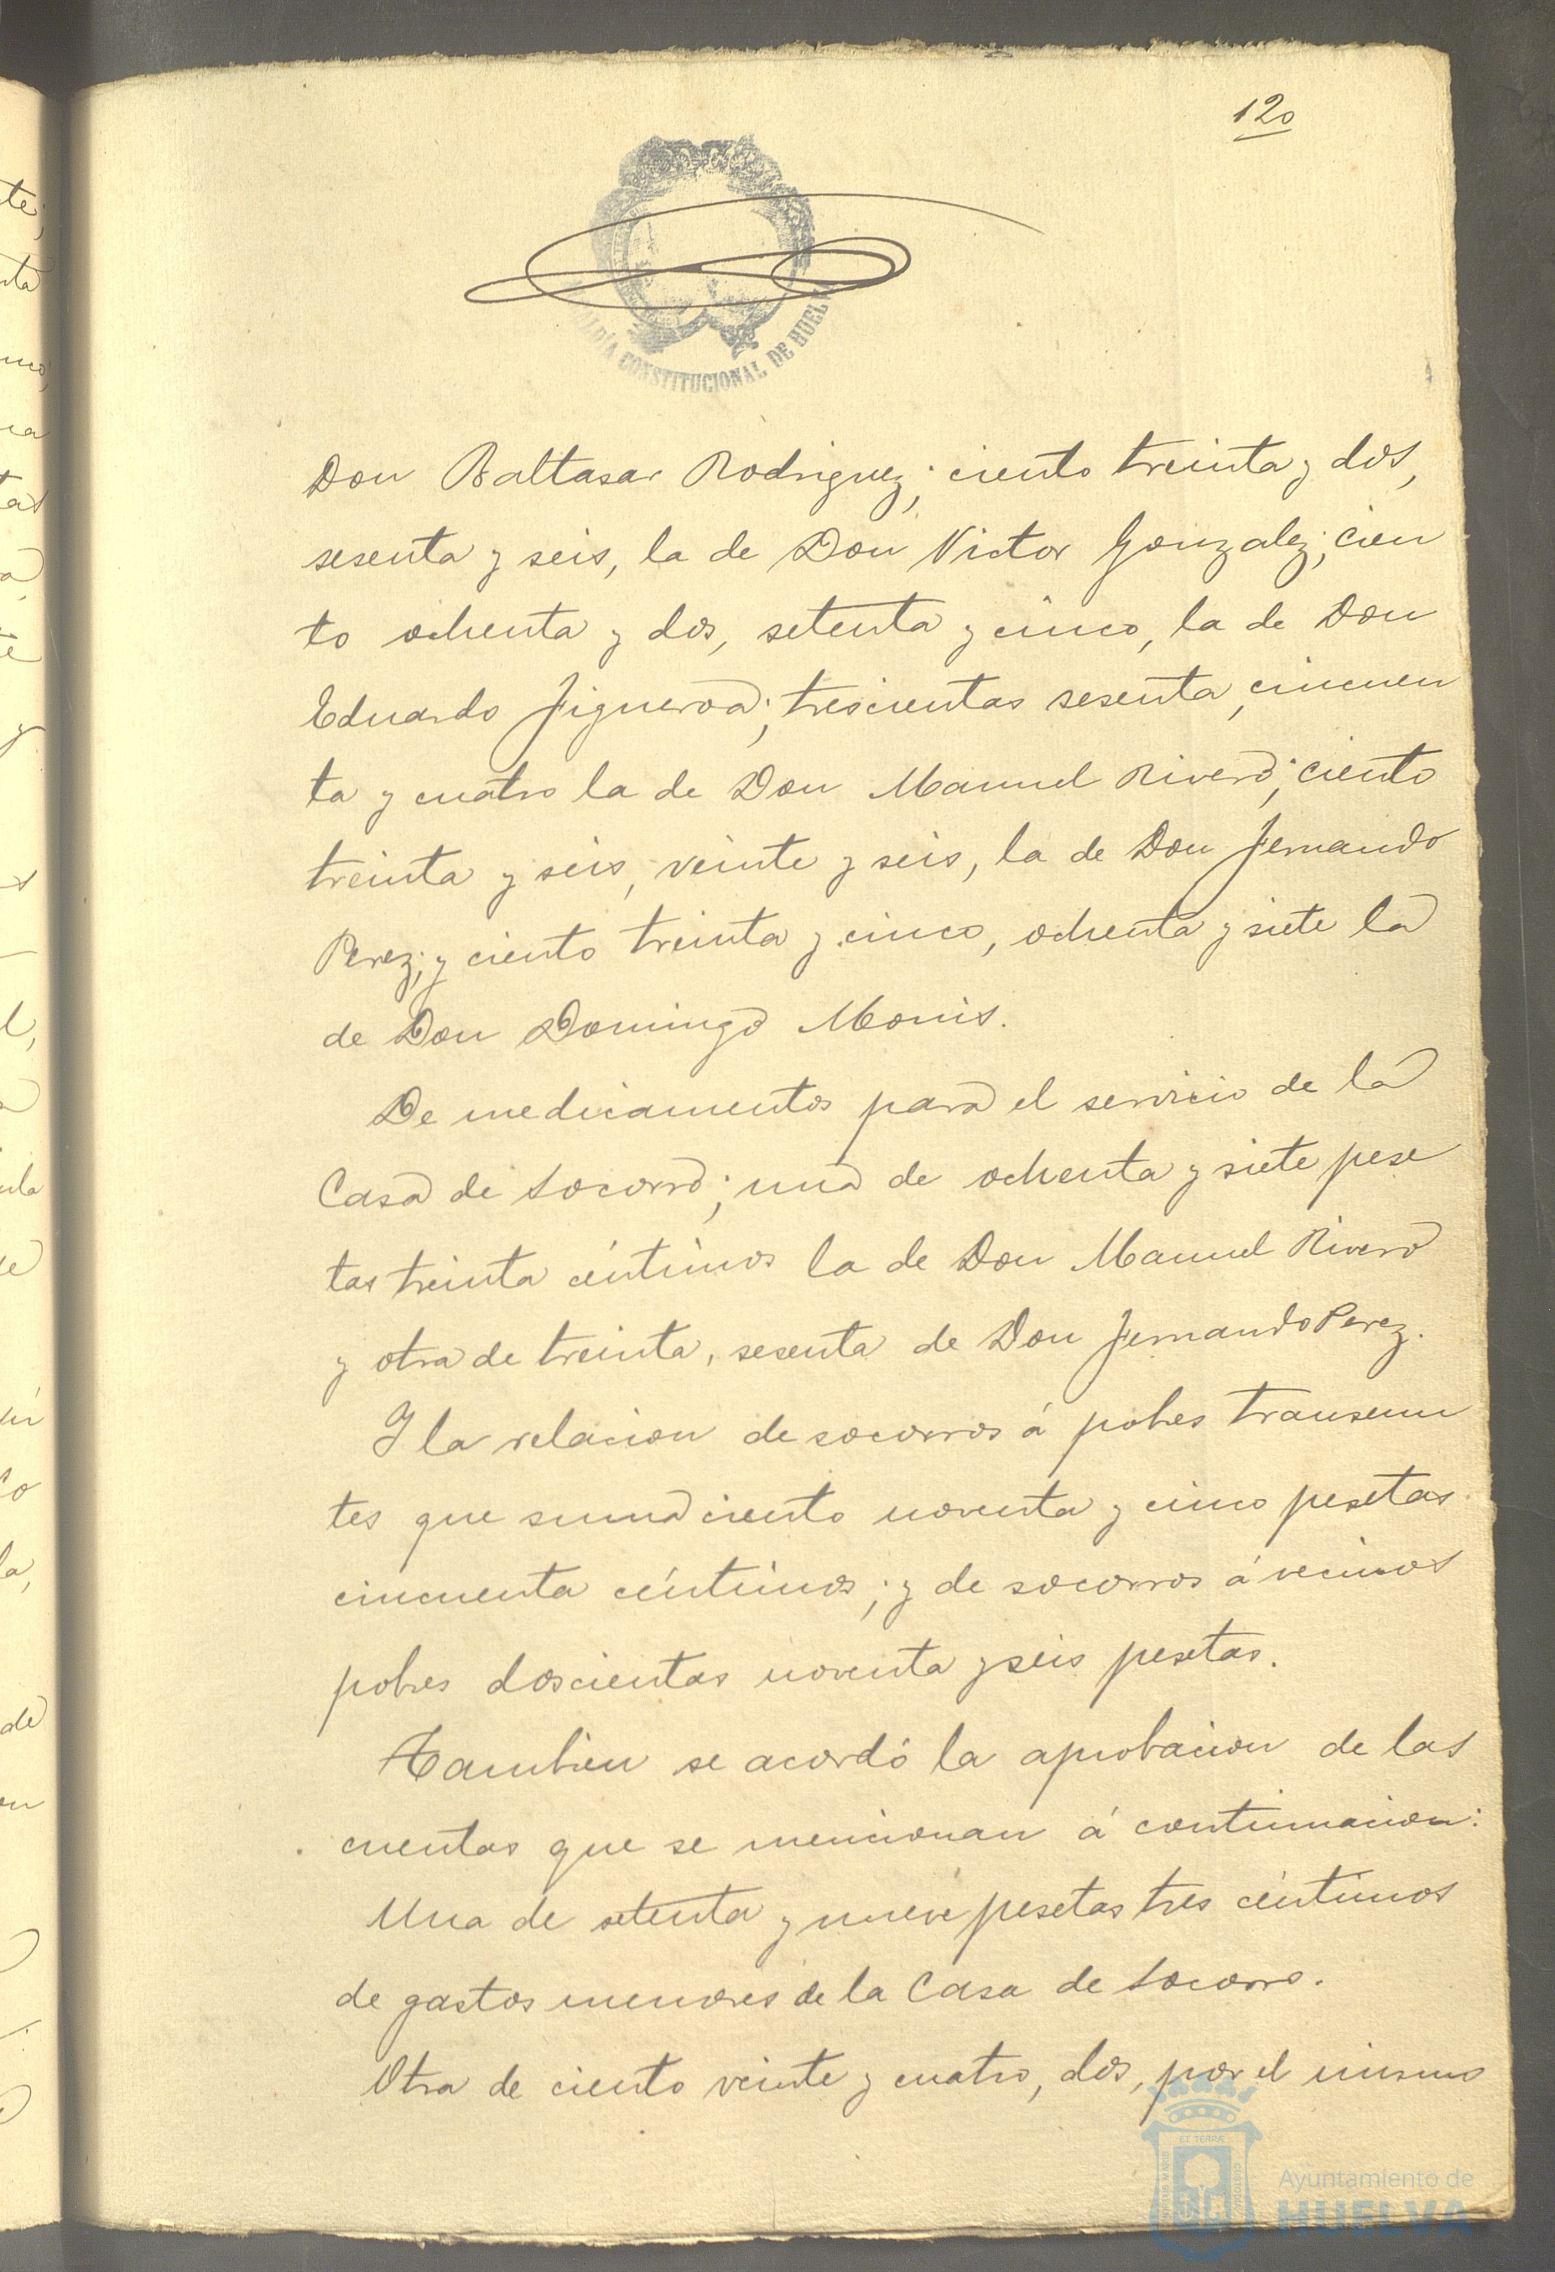 120
ALDÍA CONSTITUCIONAL DE HUELV
Don Baltasar Rodriguez; ciento treinta y dos,
sesenta y seis, la de Don Victor Gonzalez; cien
to ochenta y dos, setenta y cinco, la de Don
Eduardo Figueroa; trescientas sesenta, cincuen
ta y cuatro la de Don Manuel Rivero; ciento
treinta y seis, veinte y seis, la de Don Fernando
Perez; y ciento treinta y cinco, ochenta y siete la
de Don Domingo Monis.
De medicamentos para el servicio de la
Casa de Socorro; una de ochenta y siete pese
tas treinta céntimos la de Don Manuel Rivero
y otra de treinta, sesenta de Don Fernando Perez.
Y la relacion de socorros á pobres transeun
tes que suma ciento noventa y cinco pesetas
cincuenta céntimos; y de socorros á vecinos
pobres doscientas noventa y seis pesetas.
Tambien se acordó la aprobacion de las
cuentas que se mencionan á continuacion:
Una de setenta y nueve pesetas tres céntimos
de gastos menores de la Casa de Socorro.
Otra de ciento veinte y cuatro, dos, por el mismo
Ayuntamiento de
HUELVA